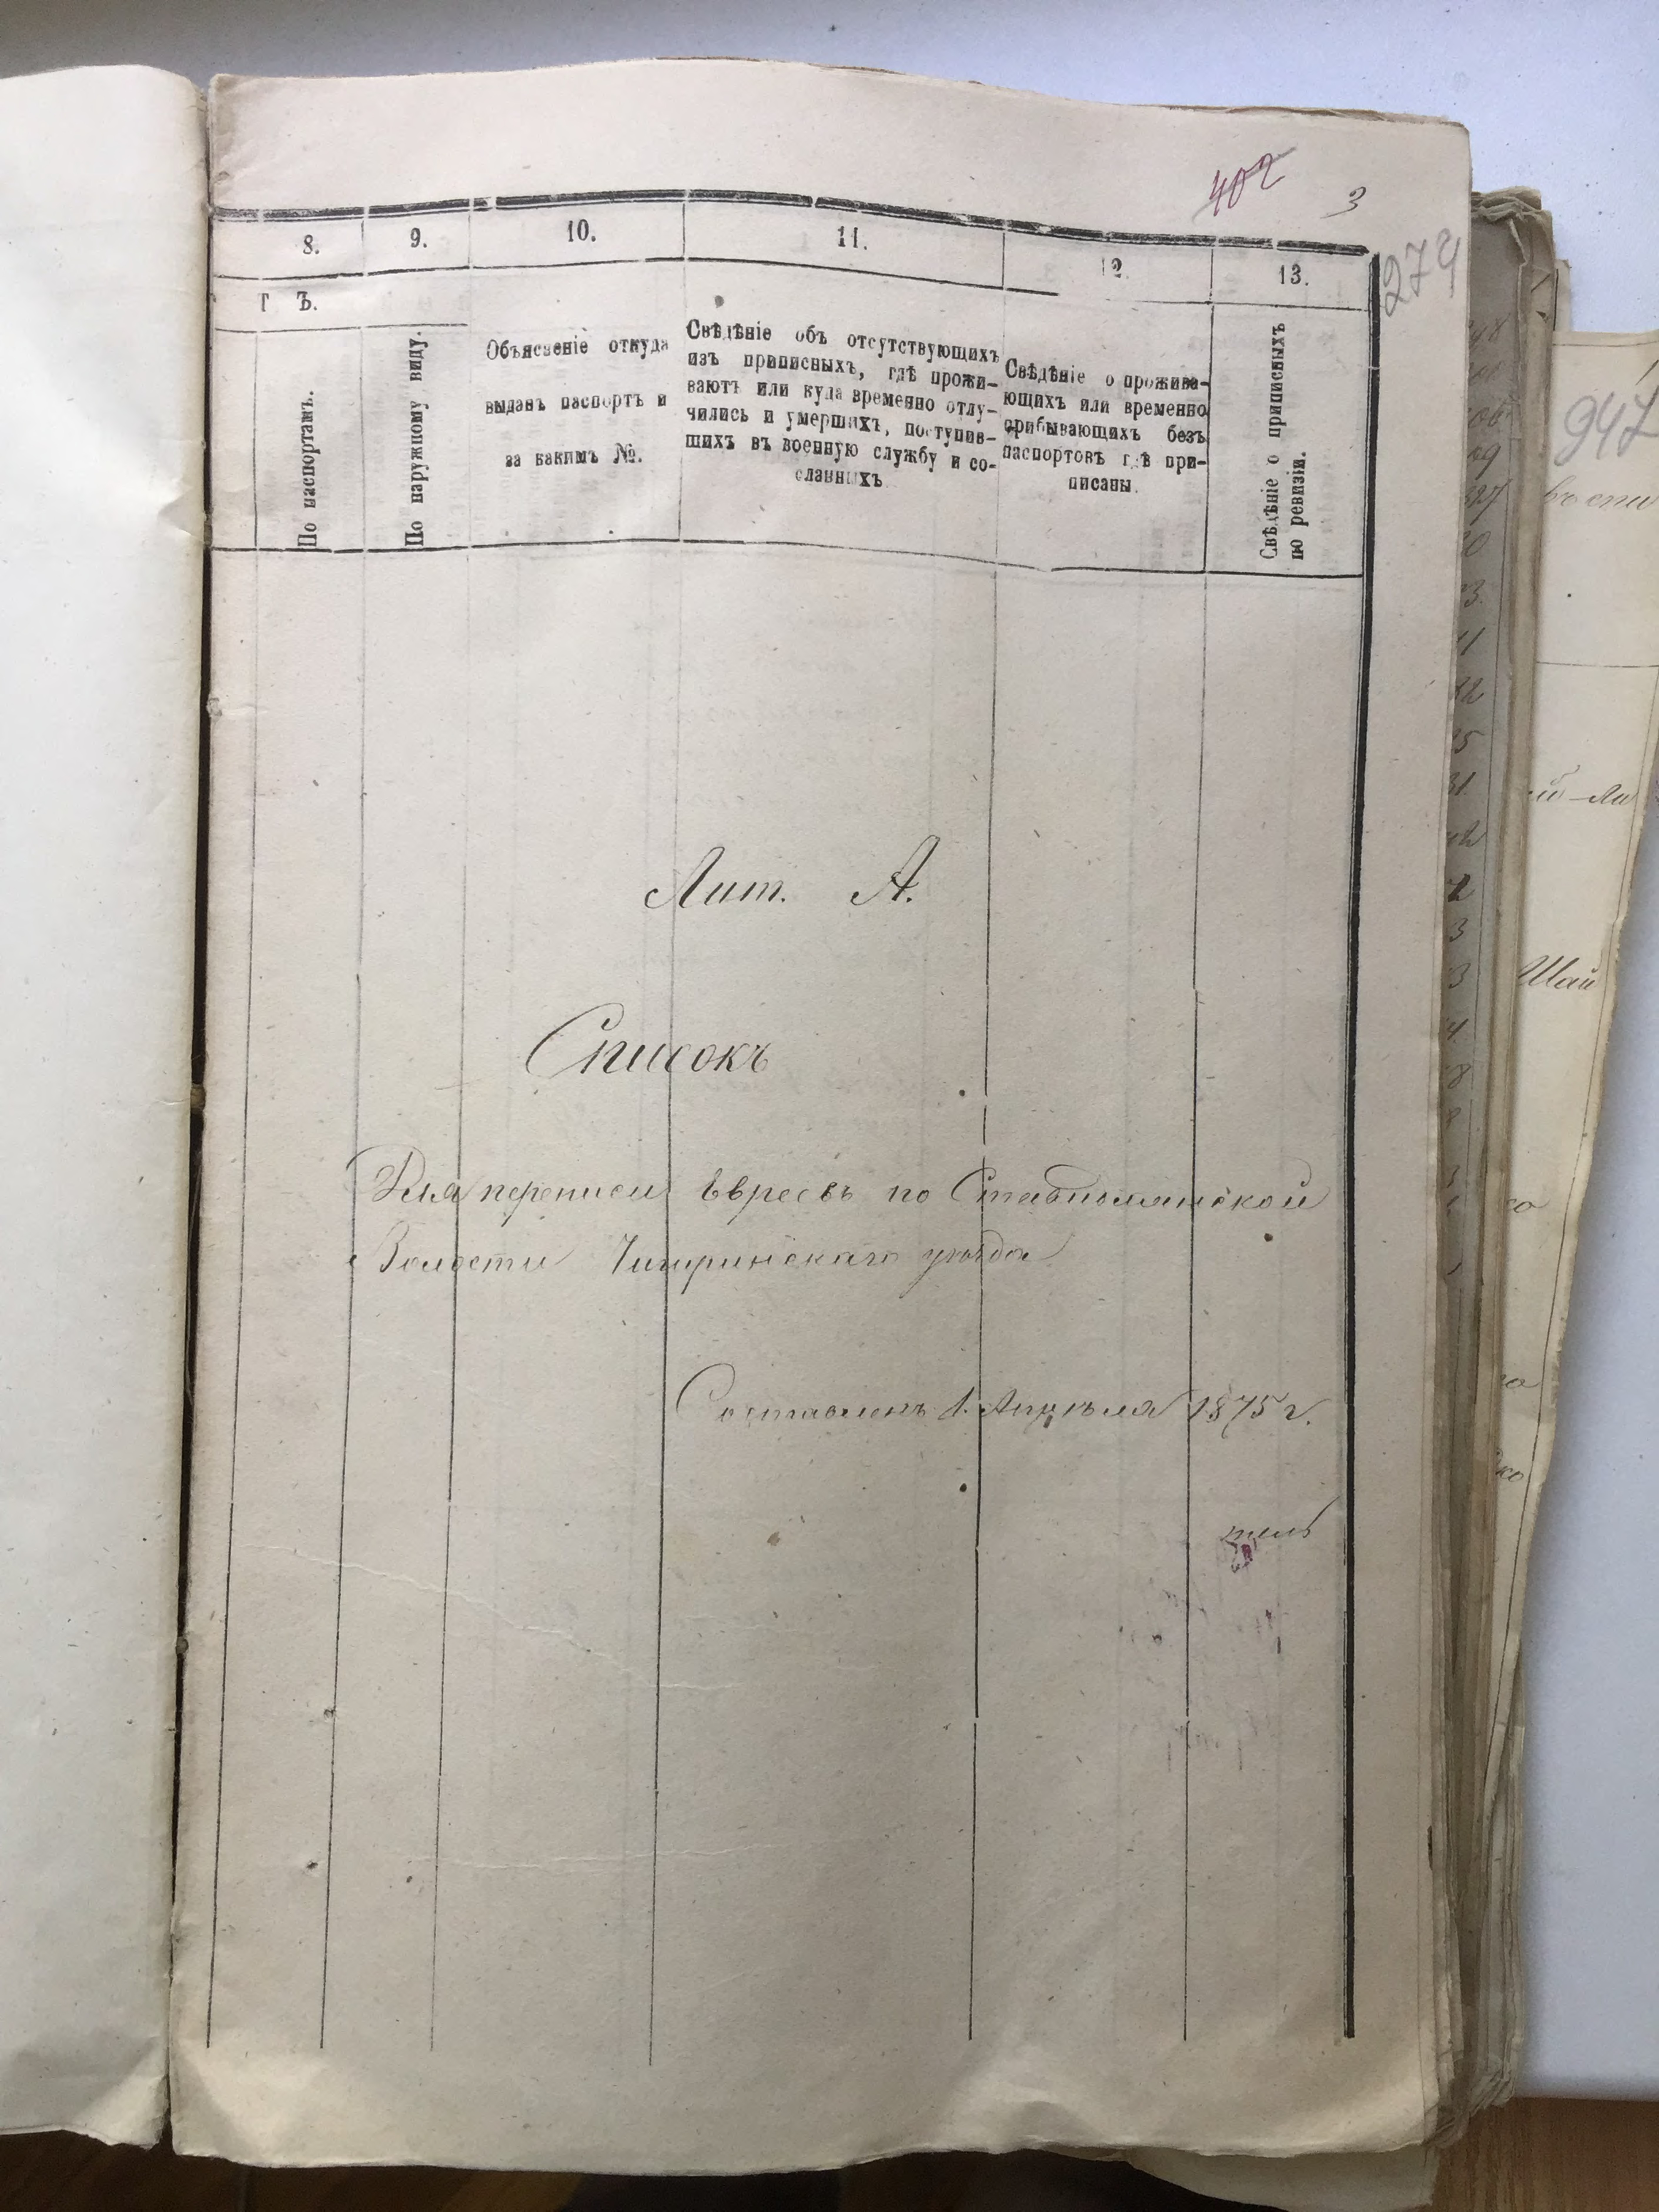 402
3
274
8. 9. 10. 11. 12. 13.
Г Ъ.
По паспортамъ.
По наружному виду.
Объясненіе откуда
выданъ паспортъ и
за какимъ №.
Свѣдѣніе объ отсутствующихъ
изъ приписныхъ, гдѣ прожи-
ваютъ или куда временно отлу-
чились и умершихъ, поступив-
шихъ въ военную службу и со-
сланныхъ
Свѣдѣніе о прожива-
ющихъ или временно
прибывающихъ безъ
паспортовъ гдѣ при-
писаны.
Свѣдѣніе о приписныхъ
по ревизіи.
Лит. А.
Списокъ
Для переписи Евреевъ по
Волости Чигиринскаго уѣзда
Составленъ 1. Апрѣля 1875 г.
тель
947
Шай